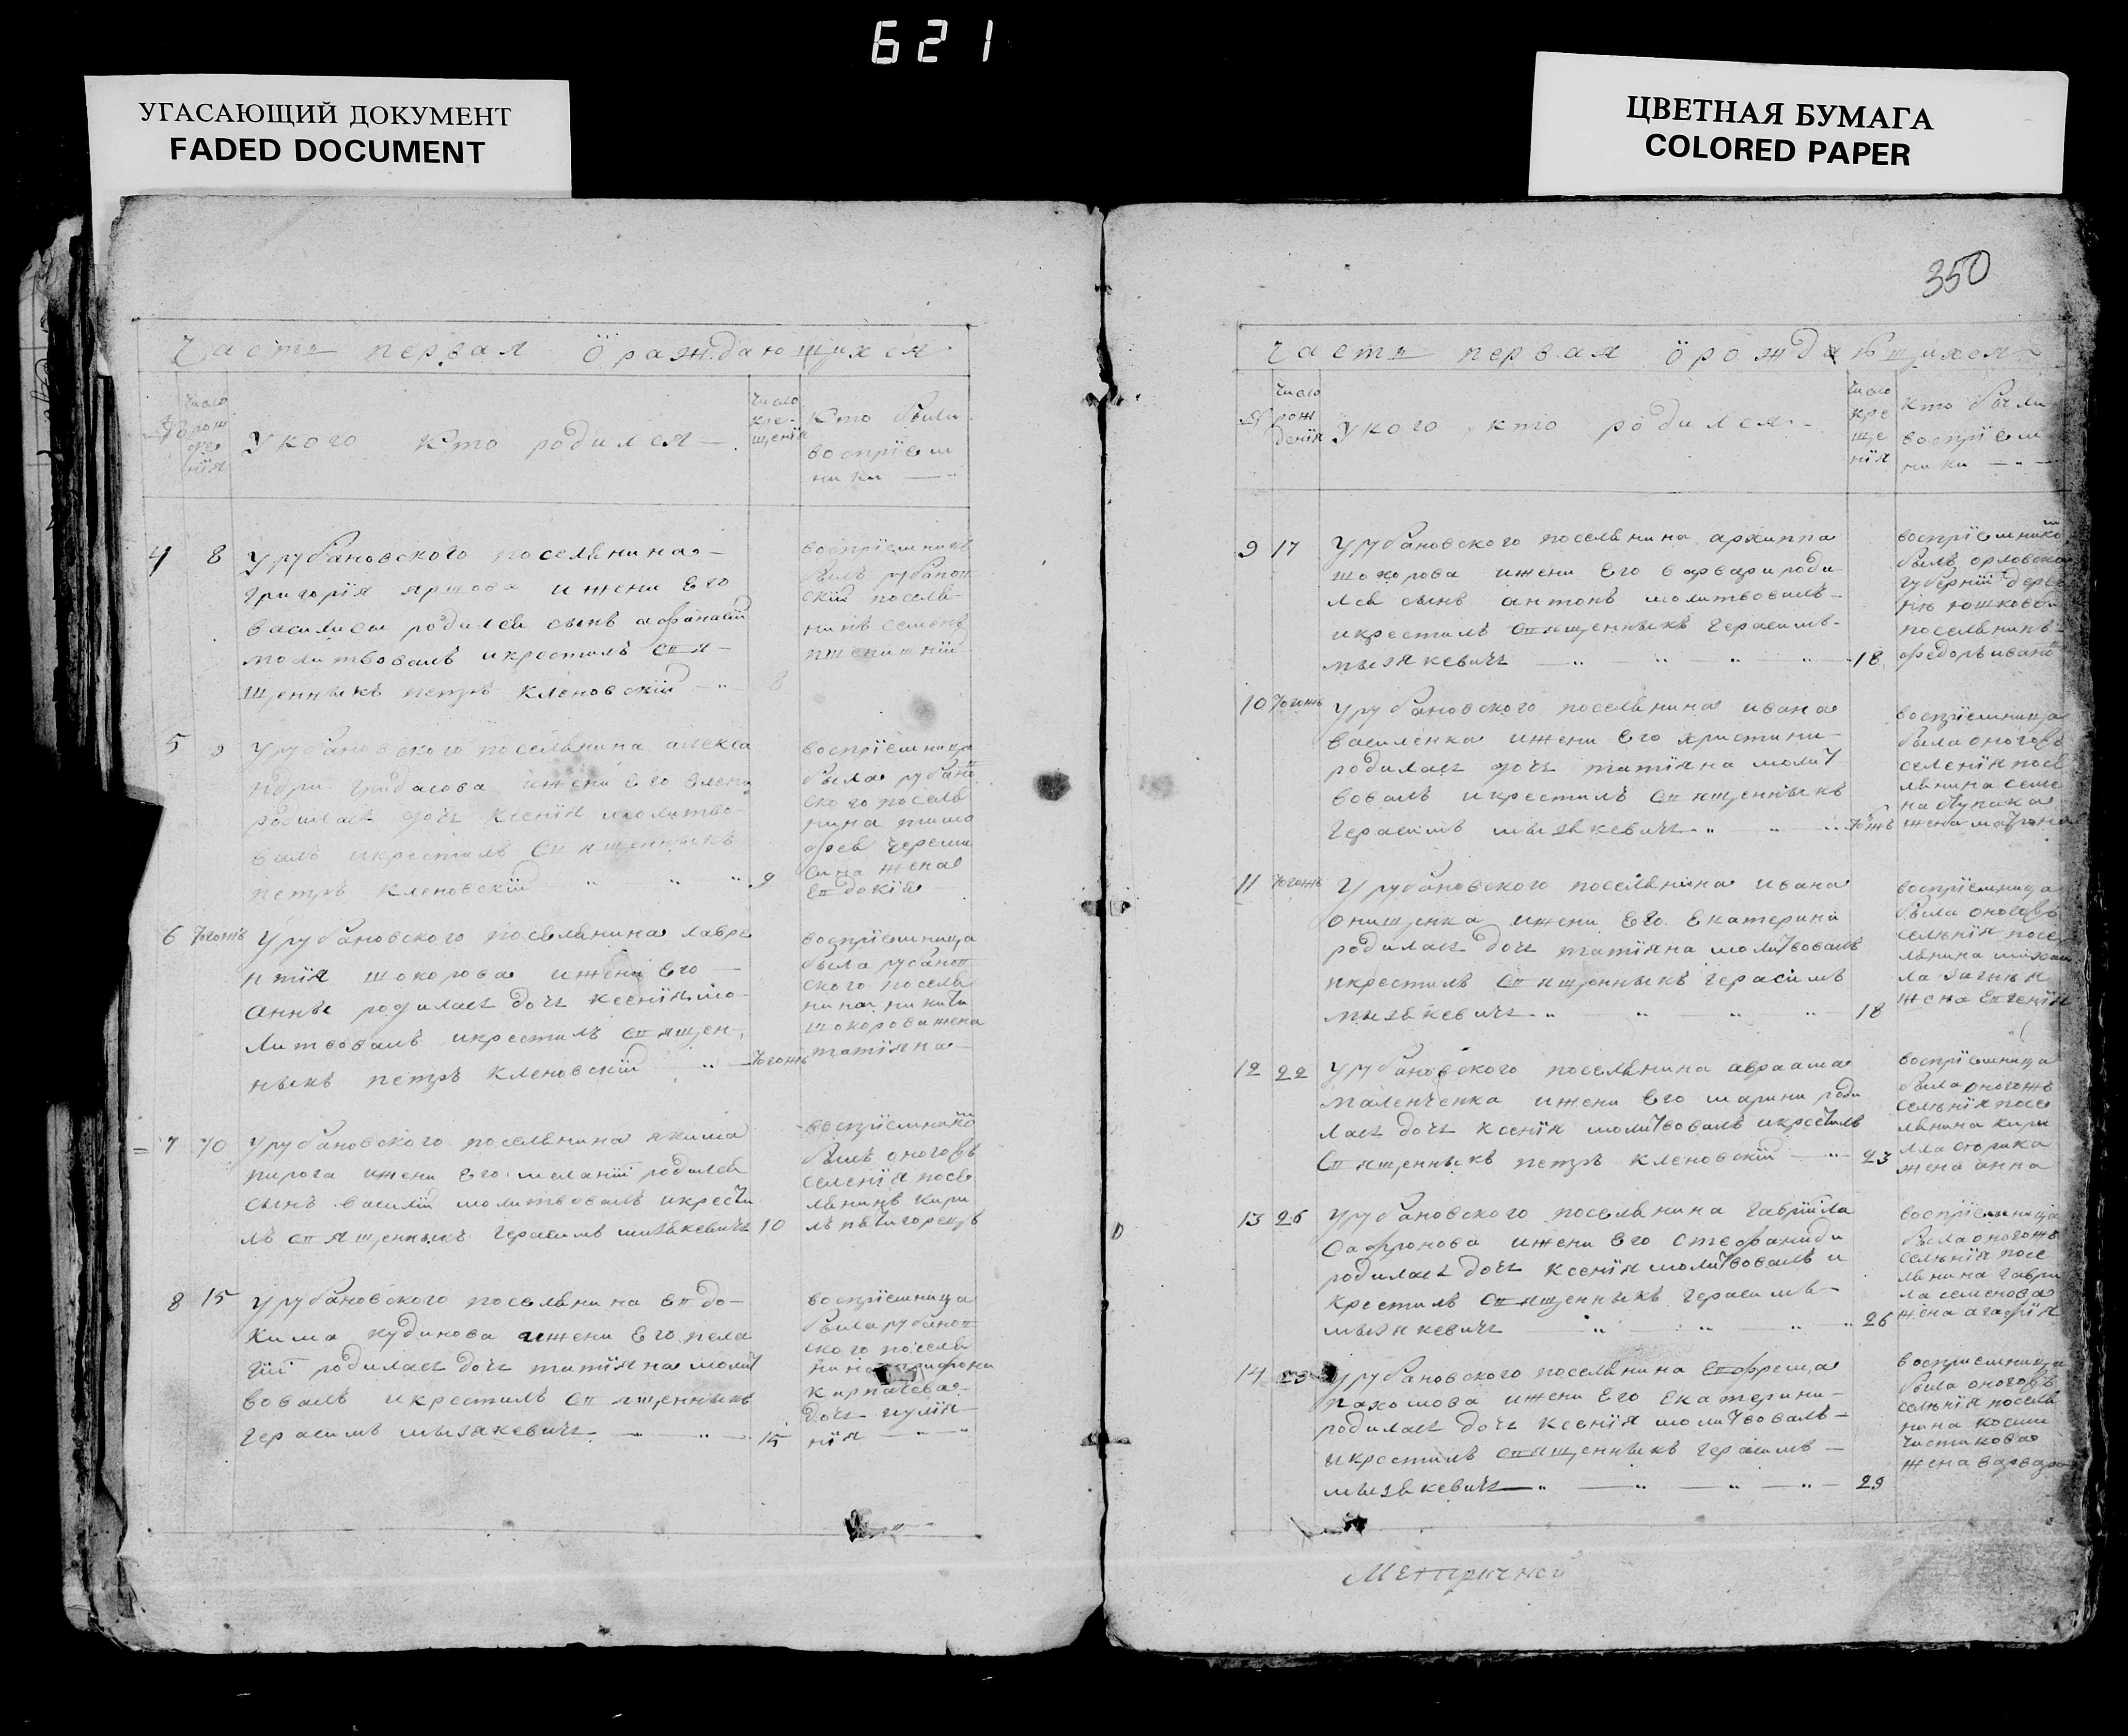 621
УГАСАЮЩИЙ ДОКУМЕНТ
FADED DOCUMENT
ЦВЕТНАЯ БУМАГА
COLORED PAPER
350
Часть первая ö раждающихся
число рож де нїя
У кого кто родился
число кре- щенїя
Кто были
воспрїем
ники
4 8 У рубановского поселянина
григорїя ершова и жени Его
василиси родился сынъ афанасїй
молитвовалъ и крестилъ свя-
щенныкъ петръ кленовскїй 8
воспрїемникъ
былъ рубанов
скїй поселя
нинъ семенъ
5 9 У рубановского поселянина алекса
ндри гридасова и жени Его Елени
родилась дочь ксенїя молитво-
валъ и крестилъ священныкъ
петръ кленовскїй 9
воспрїемница
была рубано
ского поселя
нина тимо
фея
жена
Евдокїя
6 Тогожъ У рубановского поселянина лавре
нтїя шокорова и жени Его
Анны родилась дочь ксенїя мо-
литвовалъ и крестилъ священ-
ныкъ петръ кленовскїй Тогожъ
воспрїемница
была рубанов
ского поселя
нина никити
шокорова жена
татїяна
7 10 У рубановского поселянина якима
пирога и жени Его меланїи родился
сынъ василїй молитвовалъ и крести
лъ священныкъ герасимъ мизякевичъ 10
воспрїемнико
былъ оногожъ
селенїя посе
лянинъ кири
лъ пятигорецъ
8 15 У рубановского поселянина Евдо-
кима кудинова и жени Его пела
гїи родилась дочь татїяна молит
вовалъ и крестилъ священныкъ
герасимъ мызякевичъ 15
воспрїемница
была рубанов
ского поселя
нина
дочь
нїя
Часть первая ö рождающихся
число рож денїя
У кого кто родился
число кре ще нїя
Кто были
воспрїем
ники
9 17 У рубановского поселянина архиппа
шокорова и жени Его варвари роди
лся сынъ антонъ молитвовалъ
и крестилъ священныкъ герасимъ
мызякевичъ 18
воспрїемнико
былъ орловской
губернїи дерев
нѣ юшковой
поселянинъ
федоръ иванов
10 Тогожъ У рубановского поселянина ивана
василенка и жени Его христини
родилась дочь татїяна молит
вовалъ и крестилъ священныкъ
герасимъ мызякевичъ тожъ
воспрїемница
была оногожъ
селенїя посе
лянина семе
на
жена матрона
11 Тогожъ У рубановского поселянина ивана
онищенка и жени Его Екатерини
родилась дочь татїяна молитвовалъ
и крестилъ священныкъ герасимъ
мызякевичъ 18
воспрїемница
была оногожъ
селенїя посе
лянина михаи
ла
жена Евгенїя
12 22 У рубановского поселянина авраама
маленченка и жени Его марини роди
лась дочь ксенїя молитвовалъ и крестилъ
священныкъ петръ кленовскїй 23
воспрїемница
была оногожъ
селенїя посе
лянина кири
лла
жена анна
13 26 У рубановского поселянина гаврїила
Сафронова и жени Его Стефаниди
родилась дочь ксенїя молитвовалъ и
крестилъ священныкъ герасимъ
мызякевичъ 26
воспрїемница
была оногожъ
селенїя посе
лянина гаври
ла семенова
жена агафїя
14 29 У рубановского поселянина Ефрема
пахомова и жени Его Екатерини
родилась дочь ксенїя молитвовалъ
и крестилъ священныкъ герасимъ
мызякевичъ 29
воспрїемница
была оногожъ
селенїя поселя
нина косми
чистикова
жена варвара
Метричной